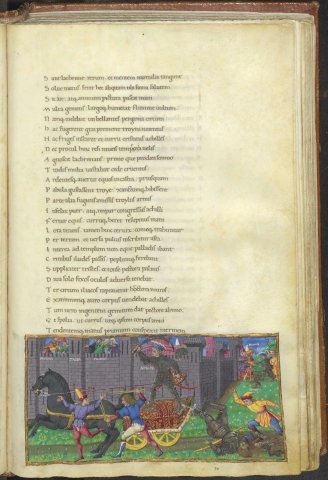 S unt lachrime rerum: et mentem mortalia tangunt
S olue metus. feret hec aliquam tibi fama salutem
S ic ait: atq; animum pictura pascit inani
M ulta gemens: largoq; humectat flumine uultum
N anq; uidebat uti bellantes pergama circum
H ac fugerent graii: premeret troiana iuuentus
H ac phriges: instaret curru cristatus achilles
N ec procul hinc rhesi niueis tentoria uelis
A gnoscit lachrimans: primo que prodita somno
T ydides multa uastabat cede cruentus
A rdentesq; auertit equos in castra: priusquam
P abula gustassent troye: xanthumq; bibissent
P arte alia fugiens amissis troylus armis
I nfelix puer: atq; impar congressus achilli
F ertur equis: curruq; heret resupinus inani
L ora tenens tamen: huic ceruixq: comeq; trahuntur
P er terram: et uersa puluis inscribitur asta
I nterea ad templum non eque palladis ibant
C rinibus iliades passis: peplumq; ferebant
S uppliciter tristes: et tunse pectora palmis
D iua solo fixos oculos aduersa tenebat
T er circum iliacos raptauerat hectora muros
E xanimumq; auro corpus uendebat achilles
T um uero ingentem gemitum dat pectore ab imo
U t spolia: ut currus: utq; ipsum corpus amici
T endentemq; manus priamum conspexit inermem